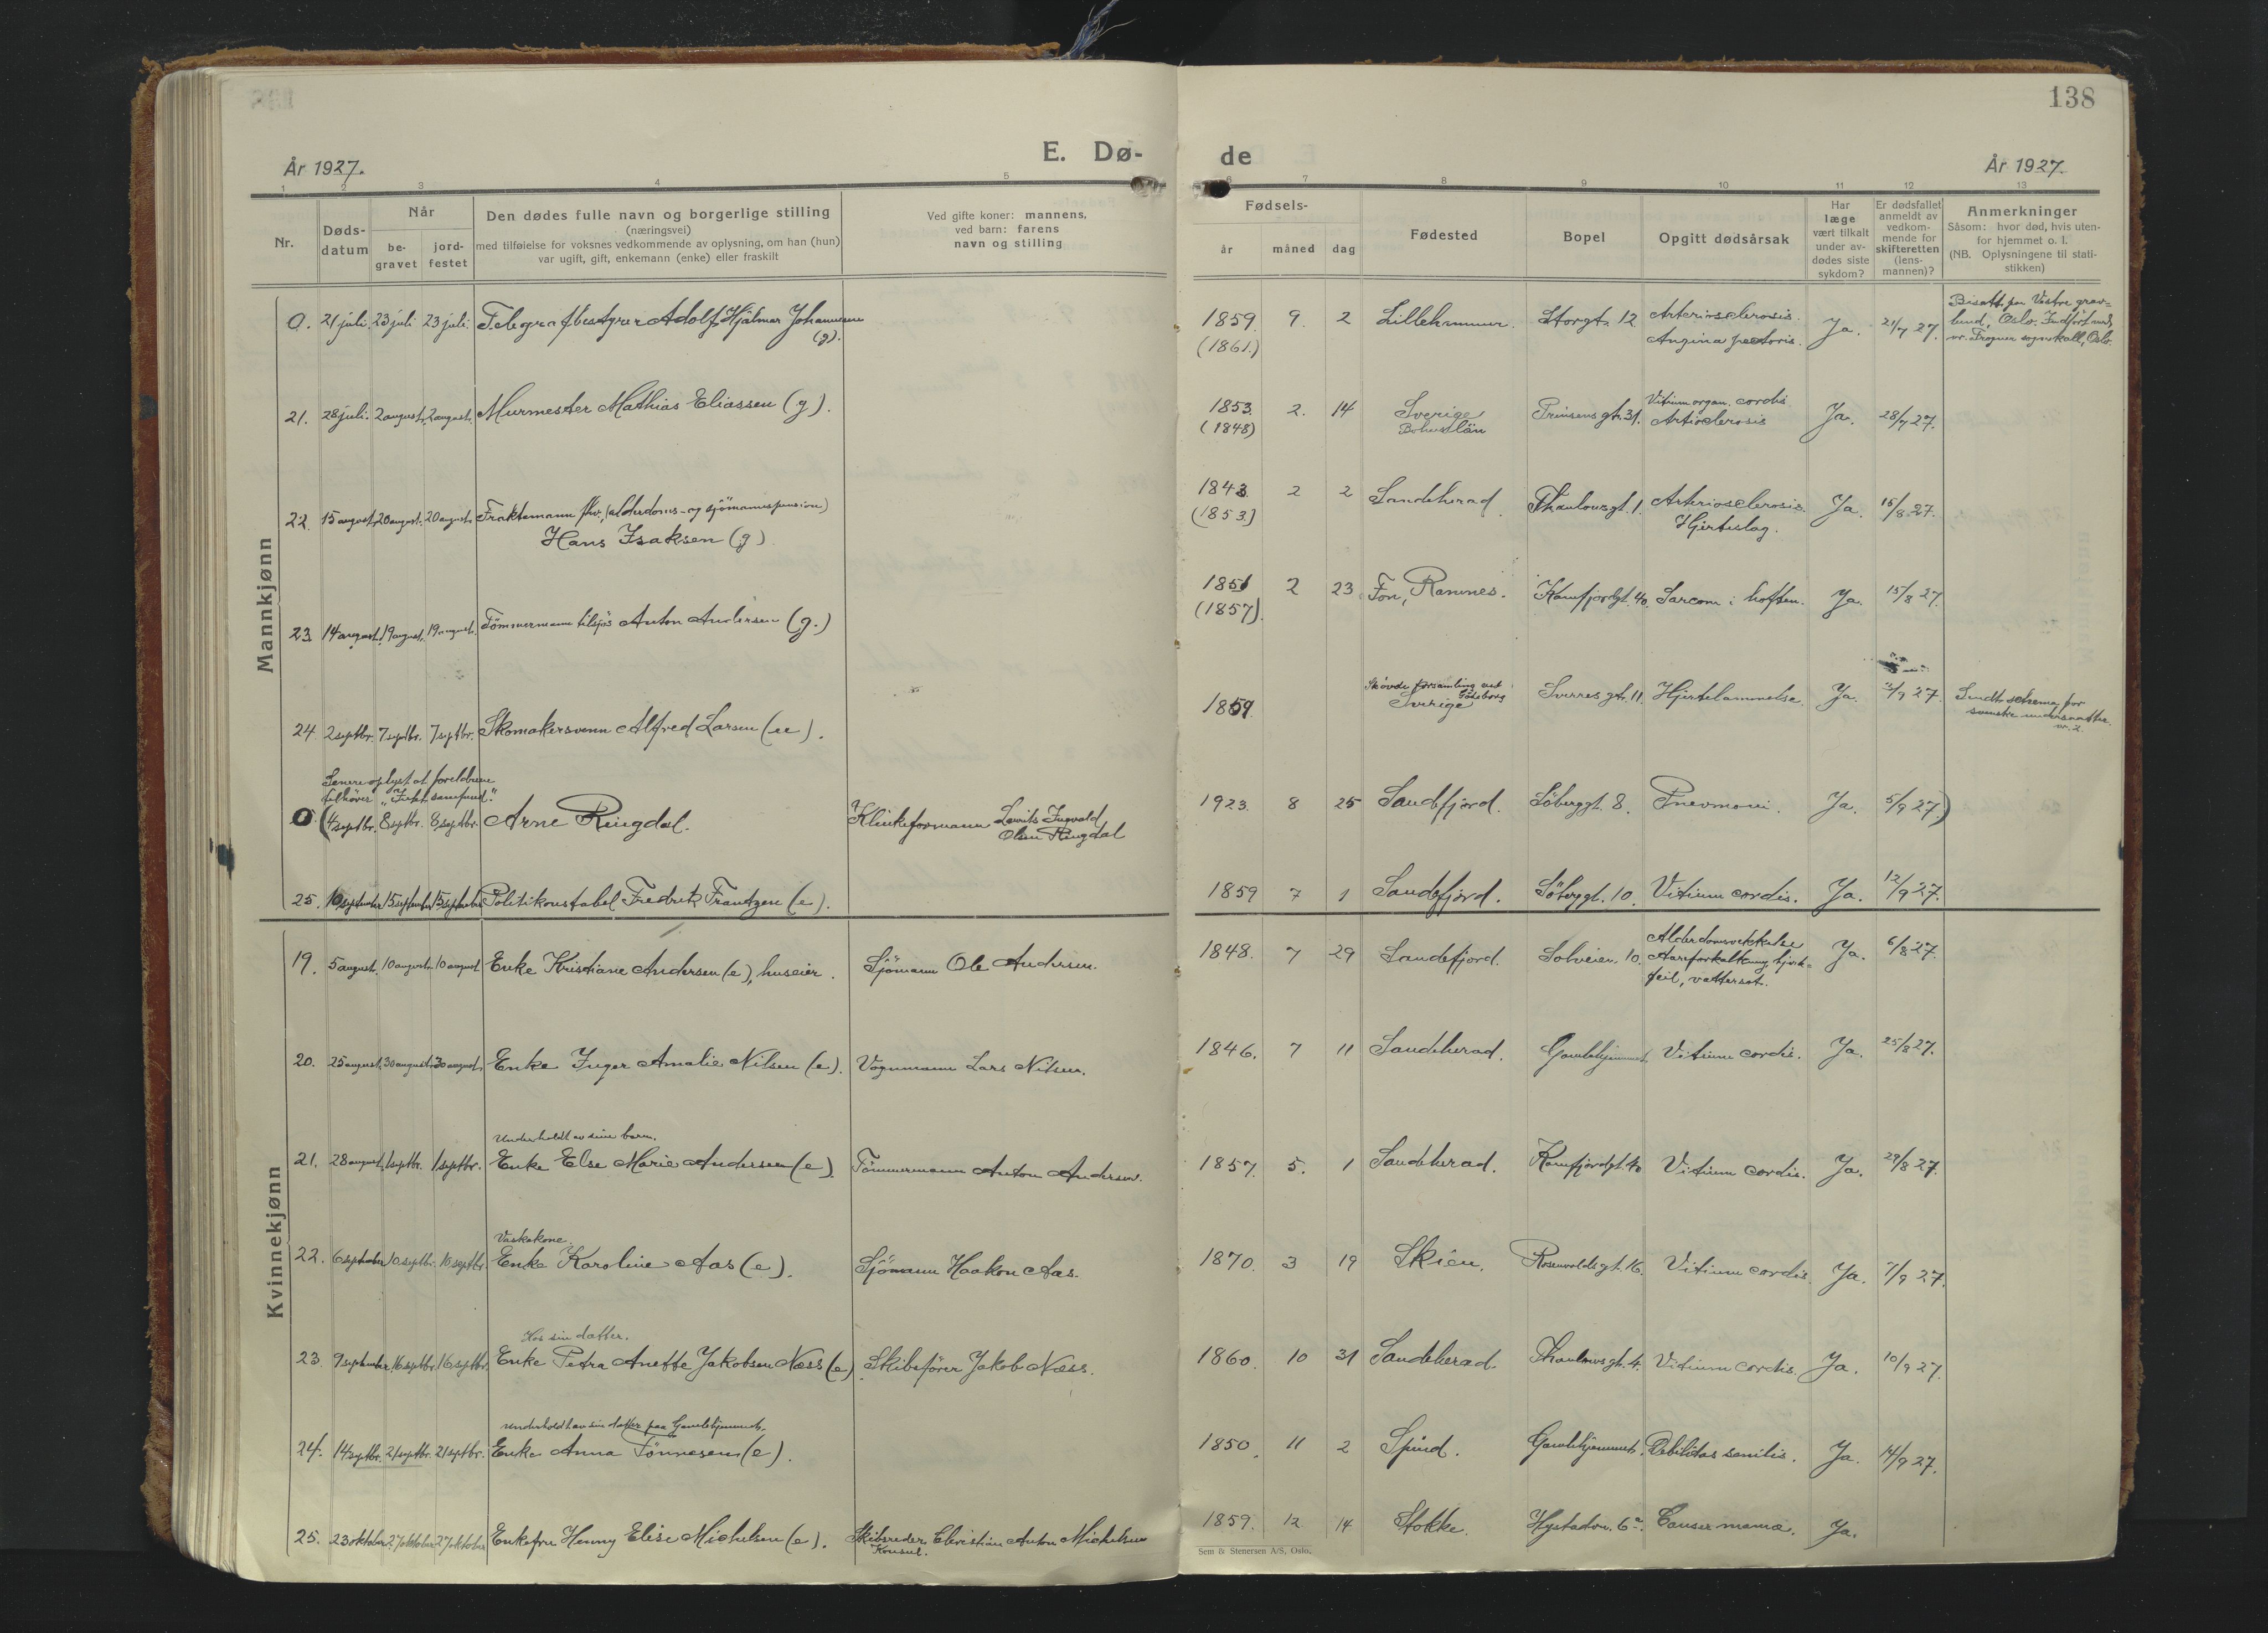 138
E. Dø-
de
År 1927.
År 1927.
1 2 3 4 5 6 7 8 9 10 11 12 13
Nr.
Døds-
datum
Når
be-
gravet
jord-
festet
Den dødes fulle navn og borgerlige stilling
(næringsvei)
med tilføielse for voksnes vedkommende av oplysning, om han (hun)
var ugift, gift, enkemann (enke) eller fraskilt
Ved gifte koner: mannens,
ved barn: farens
navn og stilling
Fødsels-
år måned dag
Fødested
Bopel
Opgitt dødsårsak
Har
læge
vært tilkalt
under av-
dødes siste
sykdom?
Er dødsfallet
anmeldt av
vedkom-
mende for
skifteretten
(lens-
mannen)?
Anmerkninger
Såsom: hvor død, hvis uten-
for hjemmet o. l.
(NB. Oplysningene til stati-
stikken)
Mannkjønn
0. 21 juli. 23 juli 23 juli. Telegrafbestyrer Adolf Hjalmar Johannessen
(g).
1859. 9. 2 Lillehammer. Storgt. 12 Arteriosclerosis. Ja. 21/7 27.
(1861.) Angina pectoris.
Bisatt paa Vestre grav-
lund, Oslo. Indført und.
nr. Frogner sognekall, Oslo.
21. 28 juli. 2 august. 2 august. Murmester Mathias Eliassen (g).
1853. 2. 14 Sverige Prinsensgt. 31. Vitium organ. cordis Ja. 28/7 27.
(1848) Bohuslän Artiosclerosis
22. 15 august. 20 august. 20 august. Fraktemann fhv. (alderdoms- og sjömannspension)
Hans Isaksen (g)
1843. 2 2 Sandeherad. Thaulowsgt. 1. Arteriosclerosis. Ja. 15/8 27.
(1853) Hjerteslag.
23. 14 august. 19 august. 19 august. Tömmermann tilsjös Anton Andersen (g.)
1851 2 23 Fon, Ramnes. Kamfjordgt. 40. Sarcom i hoften. Ja. 15/8 27.
(1857).
24. 2 septbr. 7 septbr. 7 septbr. Skomakersvenn Alfred Larsen (u).
1859. Skövde forsamling ved
Göteborg
Sverige Sverres gt. 11. Hjertelammelse. Ja. 3/9 27.
Sendt schema for
svenske undersaatter.
nr. 2.
Senere oplyst at foreldrene
tilhører „Frikt. samfund."
0. (4 septbr. 8 septbr. 8 septbr. Arne Ringdal. Klinkeformann Lavrits Ingvald
Olsen Ringdal
1923. 8 25 Sandefjord. Söberggt. 8. Pnevmoni. Ja. 5/9 27.)
25. 10 september 15 september 15 september Politikonstabel Fredrik Frantzen (e).
1859 7 1 Sandefjord. Söberggt. 10. Vitium cordis. Ja. 12/9 27.
Kvinnekjønn
19. 5 august. 10 august. 10 august Enke Kristiane Andersen (e), huseier. Sjömann Ole Andersen.
1848. 7 29 Sandefjord. Solveien 10. Alderdomssvekkelse Ja. 6/8 27.
Aareforkalkning, hjerte-
feil, vattersot.
20. 25 august. 30 august. 30 august. Enke Inger Amalie Nilsen (e). Vognmann Lars Nilsen.
1846. 7 11 Sandeherad. Gamlehjemmet. Vitium cordis. Ja. 25/8 27.
Underholdt av sine barn.
21. 28 august. 1 septbr. 1 septbr. Enke Else Marie Andersen (e). Tömmermann Anton Andersen.
1857. 5. 1 Sandeherad. Kamfjordgt. 40 Vitium cordis. Ja. 29/8 27.
Vaskekone.
22. 6 september 10 septbr. 10 septbr. Enke Karoline Aas (e). Sjömann Haakon Aas.
1870. 3 19 Skien. Rosenvoldsgt. 16. Vitium cordis. Ja. 7/9 27.
Hos sin datter.
23. 9 september. 16 septbr. 16 septbr. Enke Petra Anette Jakobsen Næss (e). Skibsfører Jakob Næss.
1860. 10 31 Sandeherad. Thaulowsgt. 4. Vitium cordis. Ja. 10/9 27.
Underholdt av sin datter paa Gamlehjemmet.
24. 14 septbr. 21 septbr. 21 septbr. Enke Anna Tönnesen (e).
1850. 11 2 Spind. Gamlehjemmet. Debilitas senilis. Ja. 14/9 27.
25. 23 oktober. 27 oktober 27 oktober Enkefru Henny Elise Michelsen (e). Skibsreder, Christian Anton Michelsen
Konsul.
1859. 12 14 Stokke. Hystadvn. 6 a. Cancer mamæ. Ja.
Sem & Stenersen A/S, Oslo.